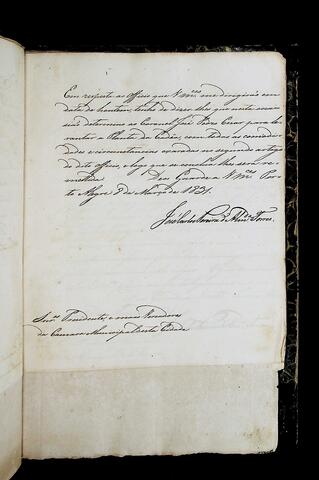 Em resposta ao Officio que V.mces me dirigirão em
data de hontem, tenho de dizer-lhes que nesta mesma
determino ao Coronel José Pedro Cesar para le-
vantar a Planta da Cadêa, com todas as comodi-
dades e circunstancias exaradas no segundo artigo
do dito officio, e logo que se conclua lhes sera re-
mettida. Deos Guarde a V.mces Por-
to Alegre 9 de Março de 1831.
José Carlos Pereira d'Almda Torres.
Snres Presidente, e mais Vereadores
da Camara Municipal desta Cidade